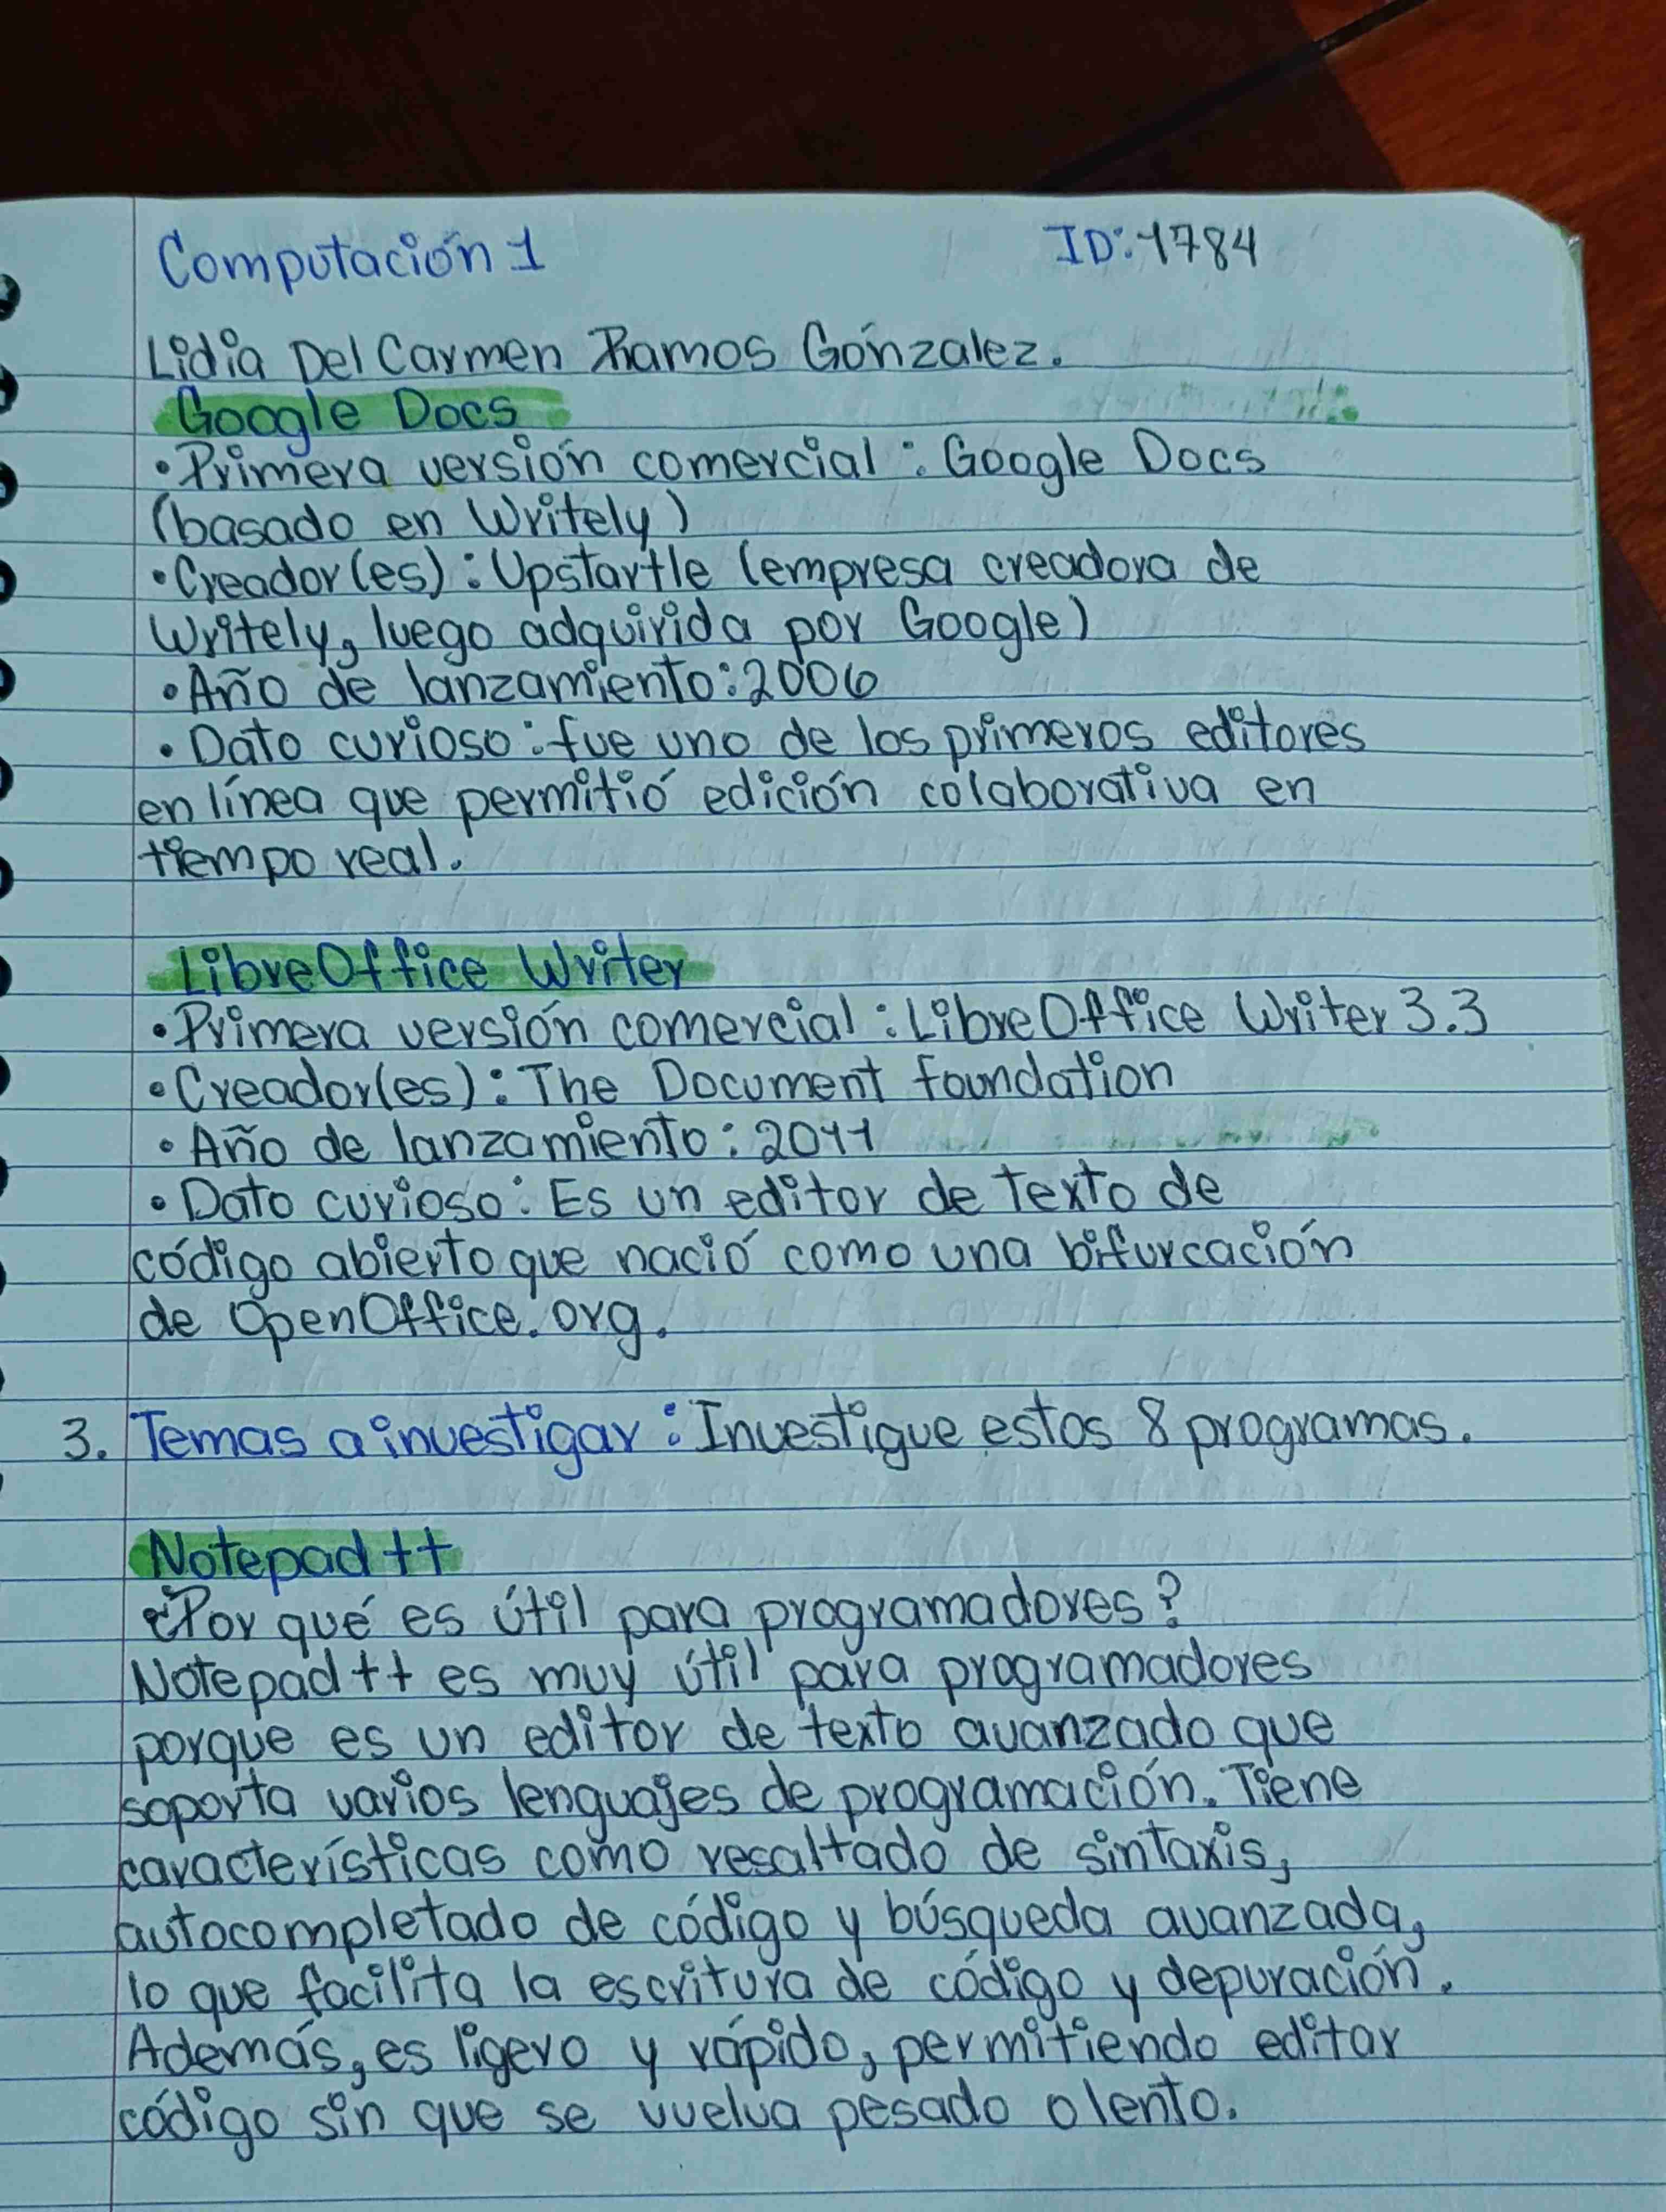 Computación 1 ID: 1784
Lidia Del Carmen Ramos Gónzalez.
Google Docs
• Primera versión comercial: Google Docs
(basado en Writely)
• Creador(es): Upstartle (empresa creadora de
Writely, luego adquirida por Google)
• Año de lanzamiento: 2006
• Dato curioso: fue uno de los primeros editores
en línea que permitió edición colaborativa en
tiempo real.
LibreOffice Writer
• Primera versión comercial: LibreOffice Writer 3.3
• Creador(es): The Document foundation
• Año de lanzamiento: 2011
• Dato curioso: Es un editor de texto de
código abierto que nació como una bifurcación
de OpenOffice.org.
3. Temas a investigar: Investigue estos 8 programas.
Notepad ++
¿Por qué es útil para programadores?
Notepad++ es muy útil para programadores
porque es un editor de texto avanzado que
soporta varios lenguajes de programación. Tiene
características como resaltado de sintaxis,
autocompletado de código y búsqueda avanzada,
lo que facilita la escritura de código y depuración.
Además, es ligero y rápido, permitiendo editar
código sin que se vuelva pesado o lento.